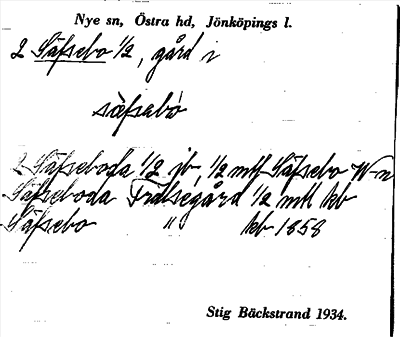 Nye sn, Östra hd, Jönköpings l.
2 Säfsebo 1/2, gård i
säfsabò
2 Säfseboda 1/2 jb, 1/2 mtl Säfsebo W-n
Säfseboda Frälsegård 1/2 mtl kb
Säfsebo " kb 1858
Stig Bäckstrand 1934.